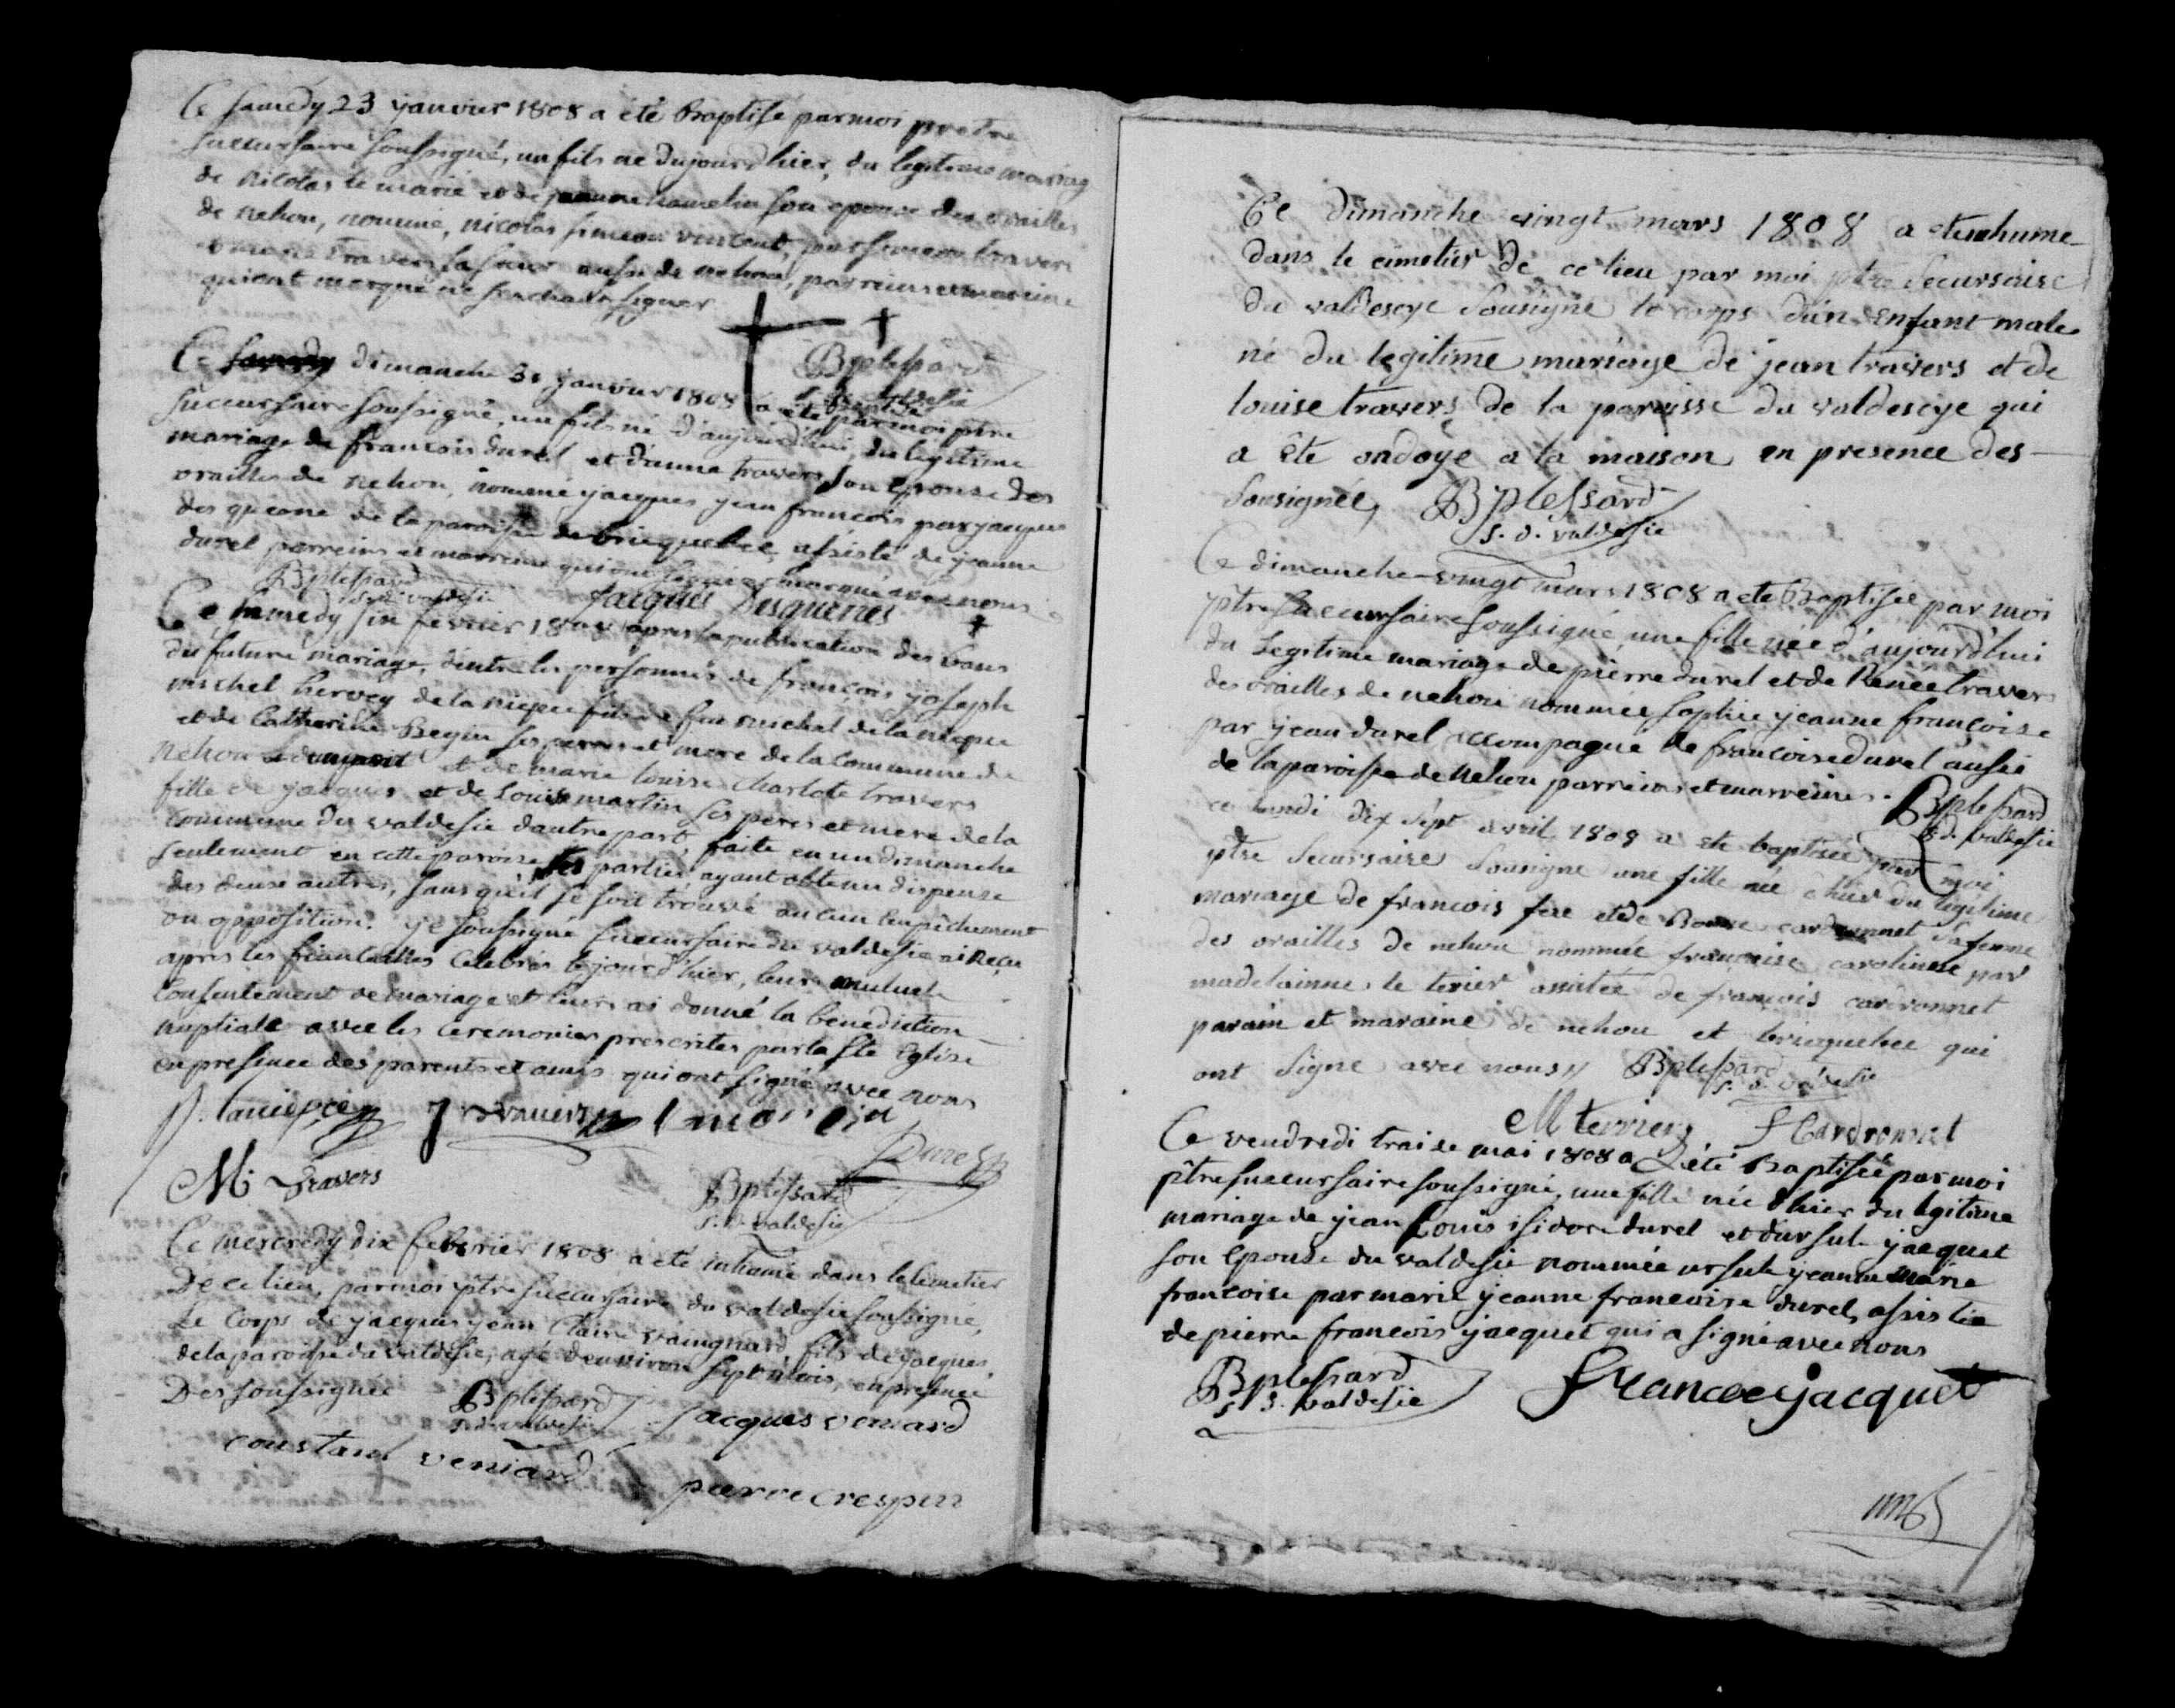 Ce samedy 23 janvier 1808 a été Baptisé par moi pretre
succursaire soussigné, un fils né dujourd'hier, du legitime mariag
de nicolas le marié et de jeanne hamelin son epouse des orailles
de nehou, nommé, nicolas simeon vincent, par simeon traver
et marie travers sa soeur aussi de nehou, parreins et mareine
qui ont merqué ne sachants signer
Bplessard
s. d. valdesie
Ce samedy dimanche 31 janvier 1808 a été baptisé par moi ptre
succursaire soussigné, un fils né d'aujourd'hui, du legitime
mariage de francois durel et d'anne travers son epouse des
orailles de nehou, nommé jacques jean francois par jacques
des quéne de la paroisse de bricquebec, assisté de jeanne
durel parreins et marreine qui ont signé et marqué avec nous
Bplessard
s. d. valdesie
Jacques Desquenes
Ce samedy six fevrier 1808 après la publication des bans
du futur mariage, d'entre les personnes de françois joseph
michel hervey de la niepce fils de feu michel de la niepce
et de Catherine Begin ses peres et mere de la Commune de
nehou d'une part et de marie louise Charlote travers
fille de jacques et de Louise martin ses peres et mere de la
commune du valdesie dautre part, faite en un dimanche
seulement en cette paroisse, les parties ayant obtenu dispense
des deuse autres, sans qu'il se soit trouvé aucun empêchement
ou opposition. je soussigné succursaire du valdesie ai Reçu
après les fiancailles Celebrés le jour d'hier, leur mutuel
consentement de mariage et leurs ai donné la benediction
nuptiale avec les Ceremonies prescrites par la Ste Eglise
en presence des parents et amis qui ont signé avec nous
laniepce J travers l martin
Durel
M. Travers
Bplessard
s. d. valdesie
Ce mercredy dix febvrier 1808 a été inhumé dans le cimetier
De ce lieu, par moi ptre succursaire du valdesie soussigné,
Le Corps de jacques jean Claire vaingnard, fils de jacques
de la paroisse du valdesie, agé d'environ sept mois, en presence
Des soussignée
Bplessard
s. d. valdesie
jacques veniard
constant veniard
pierre crespin
Ce dimanche vingt mars 1808 a ete inhume
dans le cimetier de ce lieu par moi ptre secursaire
du valdescye sousigne le corps d'un enfant male
né du legitime mariage de jean travers et de
louise travers de la paroisse du valdescye qui
a été ondoyé a la maison en presence des
sousignée, Bplessard
s. d. valdesie
Ce dimanche vingt mars 1808 a été Baptisée par moi
ptre succursaire soussigné, une fille née d'aujourd'hui
du Legitime mariage de pierre durel et de Renée travers
des orailles de nehou nommée sophie jeanne francoise
par jean durel accompagné de francoise durel aussi
de la paroisse de nehou parreins et marreines.
Bplessard
s. d. valdesie
ce lundi dix sept avril 1808 a ete baptisee par moi
ptre secursaire sousigne une fille née d'hier du legitime
mariage de francois fere et de cardronnet sa femme
des orailles de nehou nommée francoise caroline par
madelainne le terier assistée de francois cardronnet
parain et maraine de nehou et bricquebec qui
ont signe avec nous Bplessard
s. d. valdesie
M terrier F Cardronnet
Ce vendredi traise mai 1808 a été Baptisée par moi
ptre succursaire soussigné, une fille née d'hier du legitime
mariage de jean Louis isidore durel et dursule jacquet
son epouse du valdesie nommée ursule jeanne marie
francoise par marie jeanne francoise durel, assistée
de pierre francois jacquet qui a signé avec nous
Bplessard
s. d. valdesie
francoejacquet